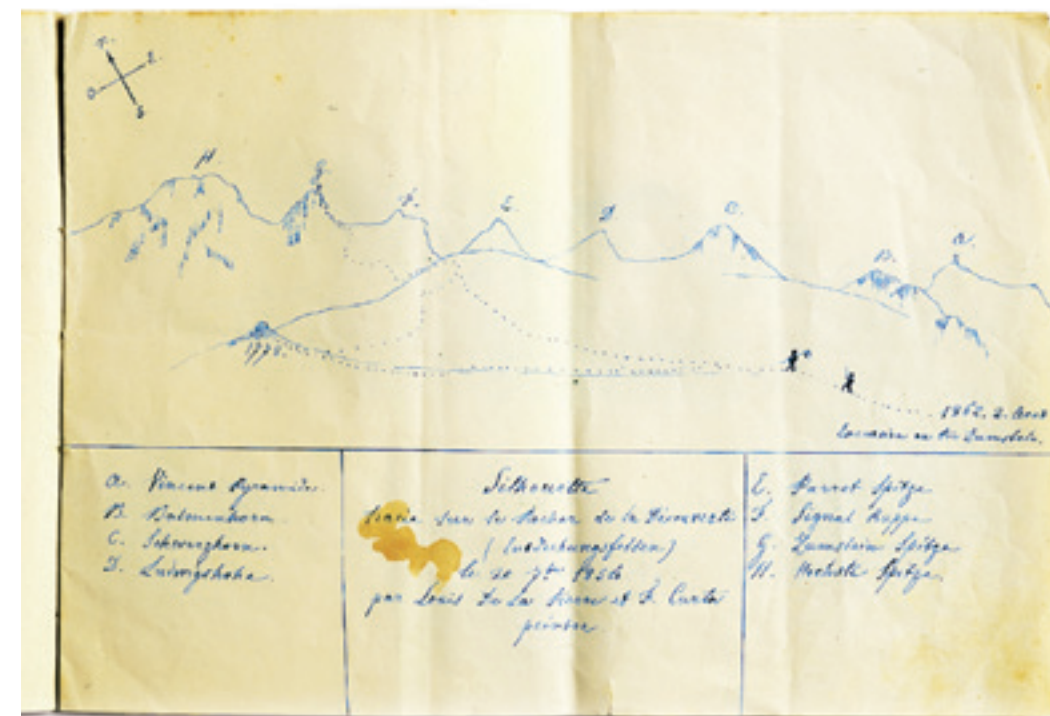 N.
E.
O.
S.
H.
G.
F.
E.
D.
C.
B.
A.
1778.
1862. 2.
A. Vincent Pyramide.
B. Balmenhorn
C. Schwarzhorn.
D. Ludwigshöhe.
Silhouette
sur le Rocher de la Découverte
(Entdeckungsfelsen)
le 20 7bre 1856
par Louis De La Pierre et F. Curta
peintre
E. Parrot Spitze
F. Signal Kuppe
G. Zumstein Spitze
H. Höchste Spitze.